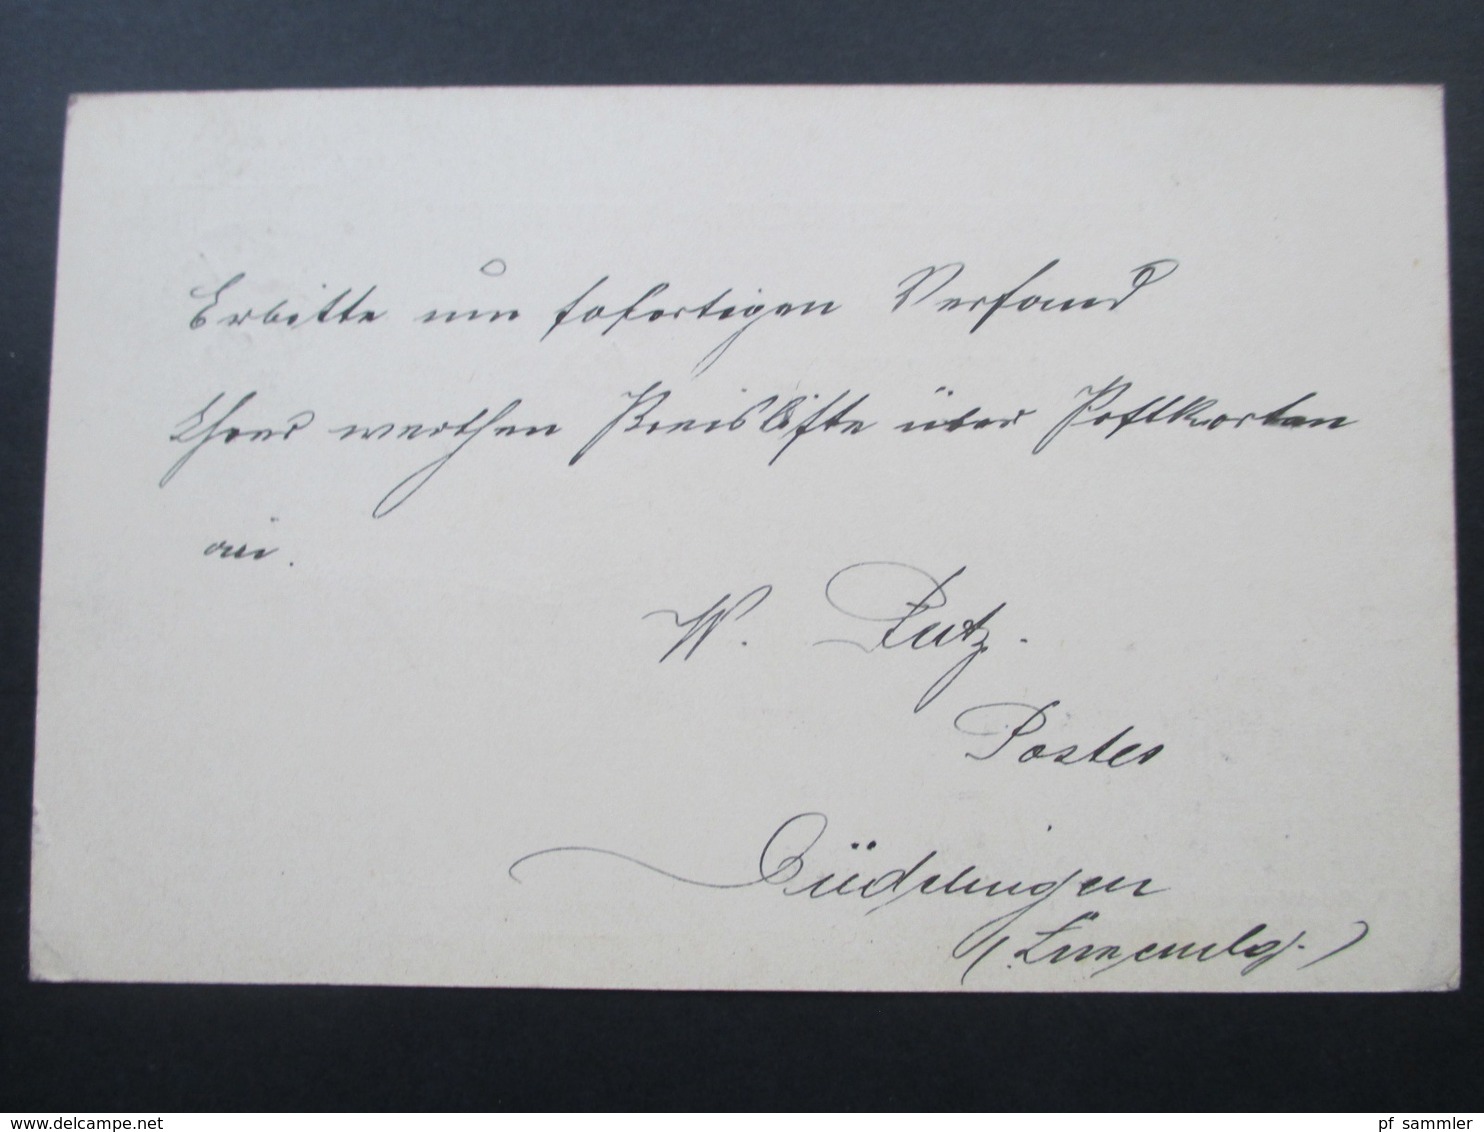 Erbitte um sofortigen Versand
Ihres werthen Preisliste über Postkarten
W. Putz.
Postes
Düdelingen
(Luxembg.)
www.delcampe.net
pf_sammler